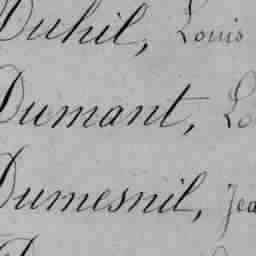 Duhil, Louis
Dumant, Lo
Dumesnil, Jea